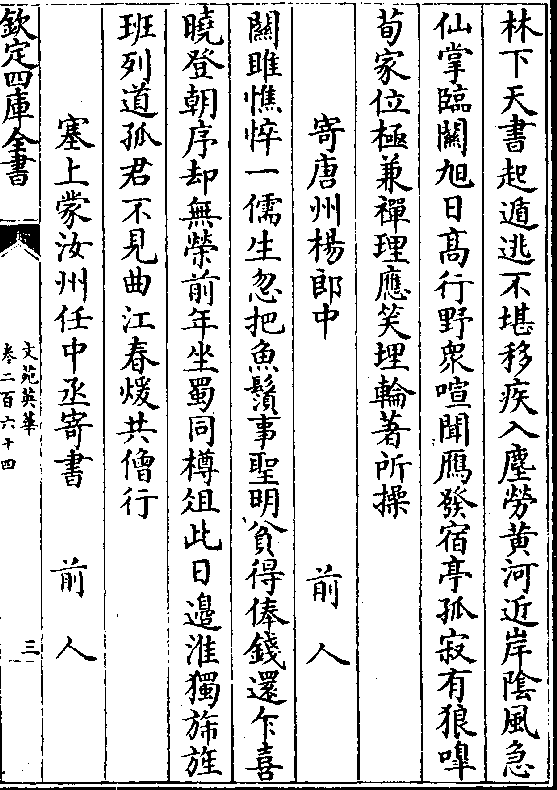 林下天書起遁逃不堪移疾入塵勞黄河近岸陰風急
仙掌臨關旭日髙行野衆喧聞鴈發宿亭孤寂有狼嘷
荀家位極兼禪理應笑埋輪著所操
寄唐州楊郎中　前人
關雎憔悴一儒生忽把魚鬚事聖明貧得俸錢還乍喜
曉登朝序却無榮前年坐蜀同樽俎此日邊淮獨斾旌
班列道孤君不見曲江春煖共僧行
塞上蒙汝州任中丞寄書　前人
欽定四庫全書
文苑英華
卷二百六十四
三